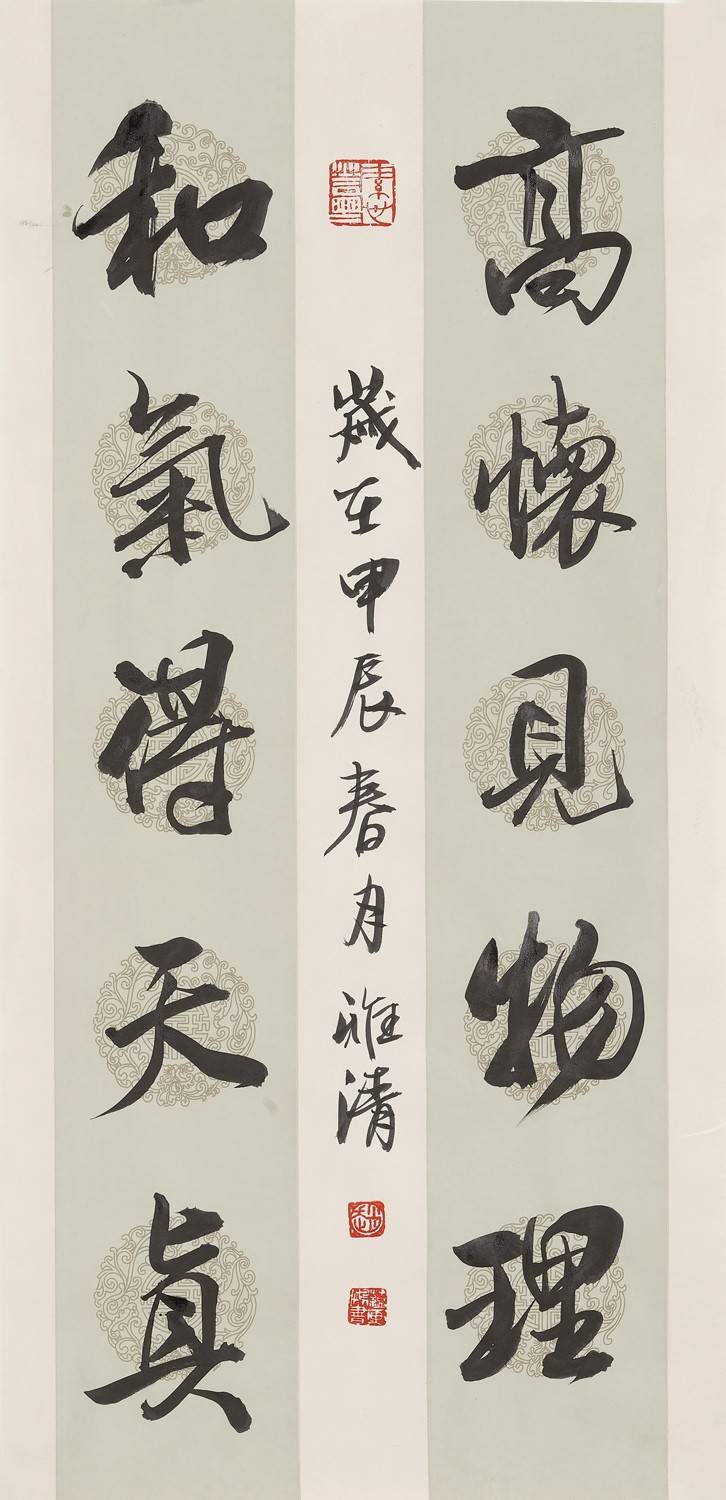 高懷見物理
和氣得天真
歲在甲辰春月雅清